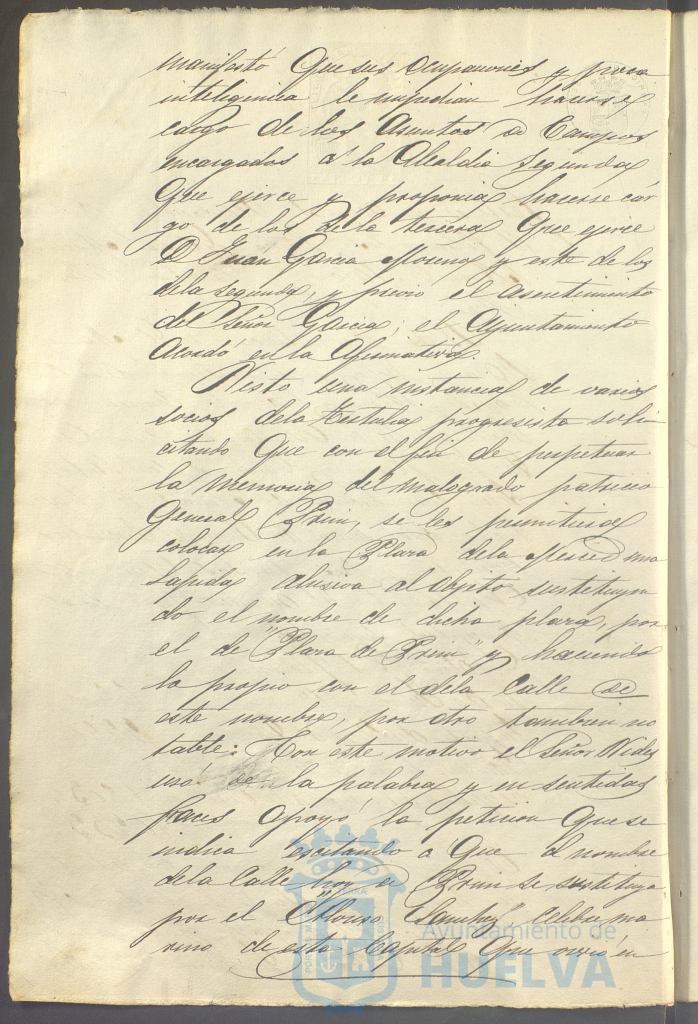 manifestó que sus ocupaciones y poca
inteligencia le impedian hacerse
cargo de los asuntos de Campos
encargados a la Alcaldia segunda
que ejerce y proponia hacerse car
go de los de la tercera que ejerce
D Juan Garcia Moreno y este de los
dela segunda, y previo el asentimiento
del Señor Garcia; el Ayuntamiento
acordó en la afirmativa.
Visto una instancia de varios
socios dela tertulia progresista soli
citando que con el fin de perpetuar
la memoria del malogrado patricio
General Prim, se les permitiera
colocar en la Plaza dela Merced una
lapida alusiva al objeto, sustituyen
do el nombre de dicha plaza, por
el de "Plaza de Prim" y haciendo
lo propio con el dela Calle de
este nombre, por otro tambien no
table: Con este motivo el Señor Vides
uso de la palabra y en sentidas
fraces apoyó la peticion que se
indica exitando a que el nombre
dela Calle hoy de Prim se sustituya
por el "Alonso Sanchez" celebre ma
rino de esta Capital que vivió en
Ayuntamiento de
HUELVA